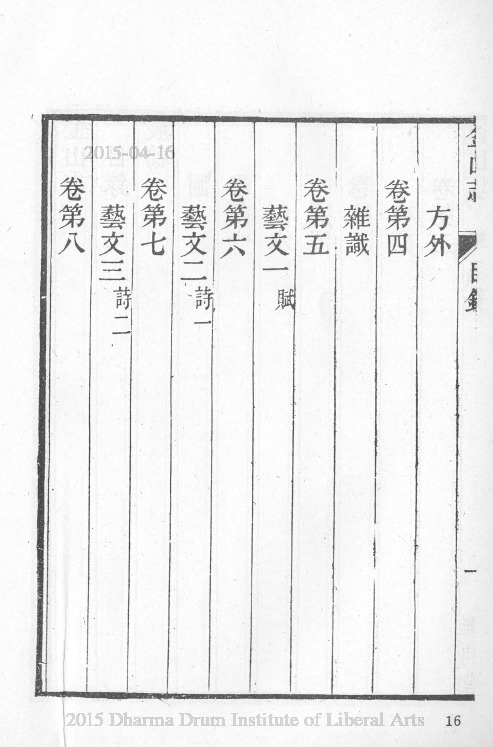 金山志
目錄
一
方外
卷第四
雜識
卷第五
藝文一 賦
卷第六
藝文二 詩一
卷第七
藝文三 詩二
卷第八
2015-04-16
2015 Dharma Drum Institute of Liberal Arts
16